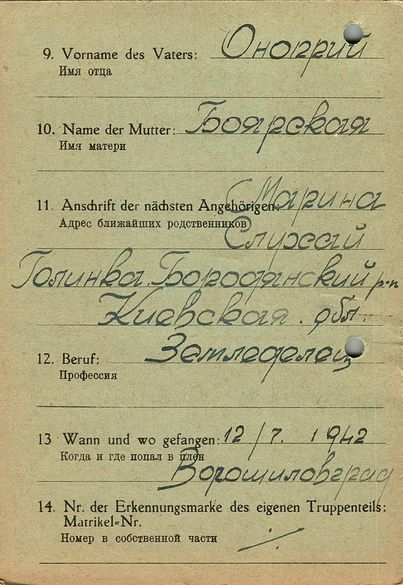 9. Vorname des Vaters: Оноприй
Имя отца
10. Name der Mutter: Боярская
Имя матери
11. Anschrift der nächsten Angehörigen: Марина
Адрес ближайших родственников Слухай
Голинка. Бородянский р-н
Киевская. обл.
12. Beruf: Земледелец
Профессия
13 Wann und wo gefangen: 12/7. 1942
Когда и где попал в плен
Ворошиловград
14. Nr. der Erkennungsmarke des eigenen Truppenteils:
Matrikel-Nr.
Номер в собственной части